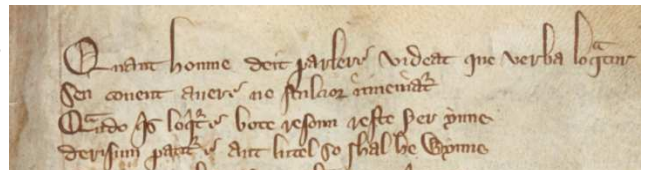 Quant honme deit parlere videat que verba loqatur
Sen covent avere ne stulcior inveniatr
Qando qis loqitre bote resoun reste þer ynne
derisum patitre ant lutel so shal he wynne